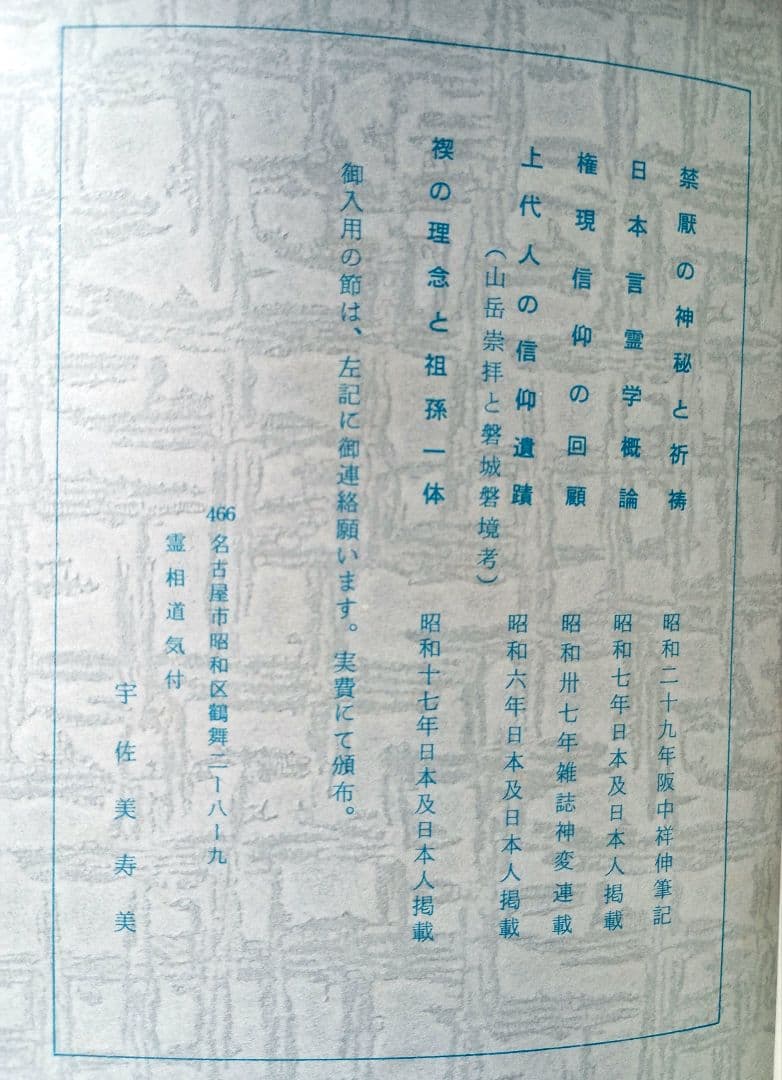 禁厭の神秘と祈祷　昭和二十九年阪中祥伸筆記
日本言霊学概論　昭和七年日本及日本人掲載
権現信仰の回顧　昭和卅七年雑誌神変連載
上代人の信仰遺蹟　昭和六年日本及日本人掲載
（山岳崇拝と磐城磐境考）
禊の理念と祖孫一体　昭和十七年日本及日本人掲載
御入用の節は、左記に御連絡願います。実費にて頒布。
466 名古屋市昭和区鶴舞二ー八ー九
霊相道気付
宇佐美寿美